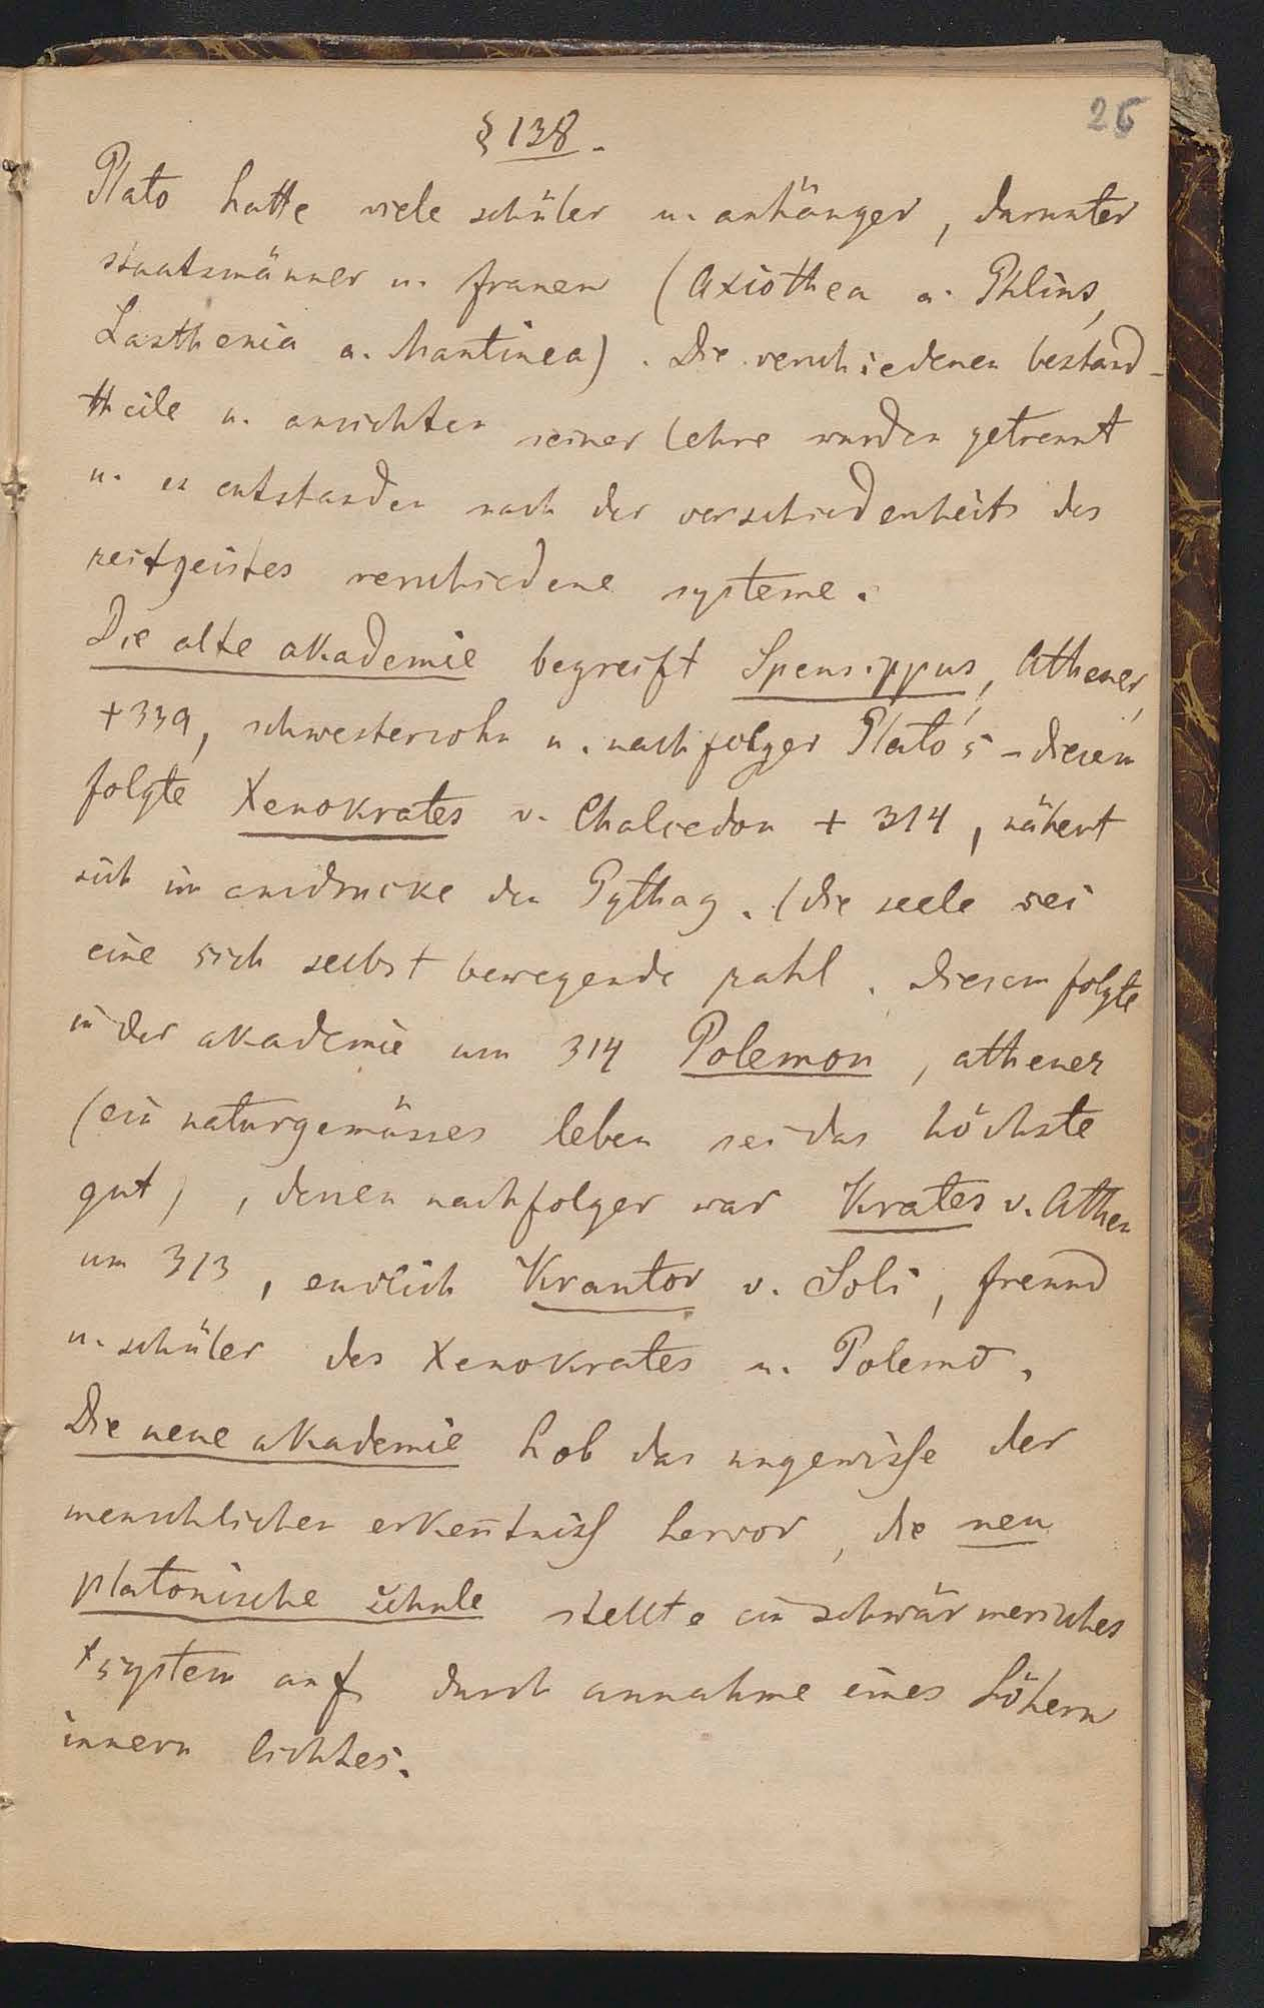 26
§ 138.
Plato hatte viele schüler u. anhänger, darunter
staatsmänner u. frauen (Axiothea a. Phlius,
Lasthenia a. Mantinea). Die verschiedenen bestand-
theile u. ansichten seiner lehre wurden getrennt
u. es entstanden nach der verschiedenheit des
zeitgeistes verschiedene systeme.
Die alte akademie begreift Speusippus, Athener,
+339, schwestersohn u. nachfolger Plato's – diesem
folgte Xenokrates v. Chalcedon + 314, nähert
sich im ausdrucke den Pythag. (die seele sei
eine sich selbst bewegende zahl. Diesem folgte
in der akademie um 314 Polemon, athener
(ein naturgemässes leben sei das höchste
gut), dessen nachfolger war Krates v. Athen
um 313, endlich Krantor v. Soli, freund
u. schüler des Xenokrates u. Polemo.
Die neue akademie hob das ungewisse der
menschlichen erkenntniss hervor, die neu
platonische schule stellte ein schwärmerisches
system auf durch annahme eines höhern
innern lichtes.